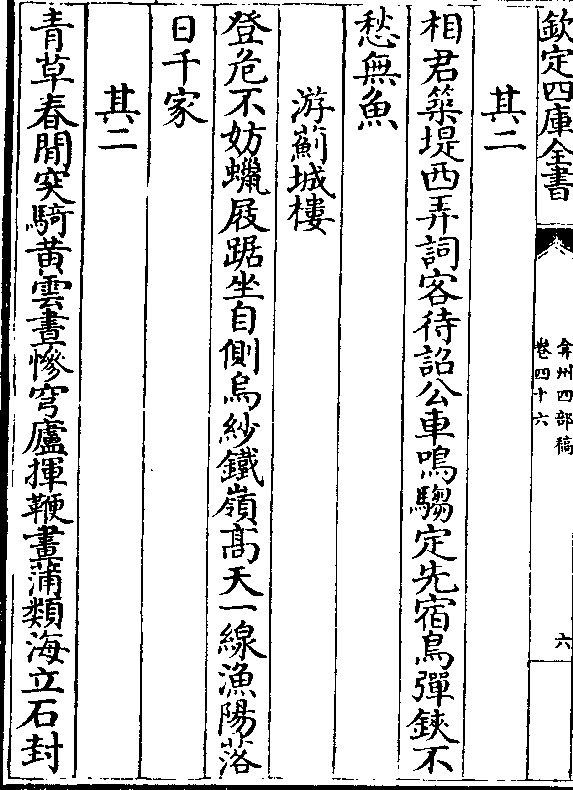 欽定四庫全書
弇州四部稿
卷四十六
六
其二
相君築堤西弄詞客待詔公車鳴騶定先宿鳥彈鋏不
愁無魚
游薊城樓
登危不妨蠟屐踞坐自側烏紗鐵嶺高天一線漁陽落
日千家
其二
青草春閒突騎黄雲晝慘穹廬揮鞭畫蒲類海立石封